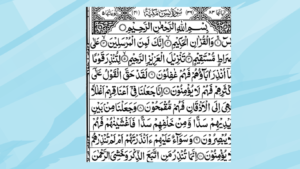 بِسْمِ اللّٰهِ الرَّحْمٰنِ الرَّحِيْمِ
وَالْقُرْاٰنِ الْحَكِيْمِ اِنَّكَ لَمِنَ الْمُرْسَلِيْنَ عَلٰى
صِرَاطٍ مُّسْتَقِيْمٍ تَنْزِيْلَ الْعَزِيْزِ الرَّحِيْمِ لِتُنْذِرَ قَوْمًا
مَّا اُنْذِرَ اٰبَآؤُهُمْ فَهُمْ غٰفِلُوْنَ لَقَدْ حَقَّ الْقَوْلُ عَلٰى
اَكْثَرِهِمْ فَهُمْ لَا يُؤْمِنُوْنَ اِنَّا جَعَلْنَا فِيْ اَعْنَاقِهِمْ اَغْلٰلًا
فَهِيَ اِلَى الْاَذْقَانِ فَهُمْ مُّقْمَحُوْنَ وَجَعَلْنَا مِنْ بَيْنِ
يْدِيْهِمْ سَدًّا وَّمِنْ خَلْفِهِمْ سَدًّا فَاَغْشَيْنٰهُمْ فَهُمْ
يُبْصِرُوْنَ وَسَوَآءٌ عَلَيْهِمْ ءَاَنْذَرْتَهُمْ اَمْ لَمْ تُنْذِرْهُمْ
يُؤْمِنُوْنَ اِنَّمَا تُنْذِرُ مَنِ اتَّبَعَ الذِّكْرَ وَخَشِيَ الرَّحْمٰنَ